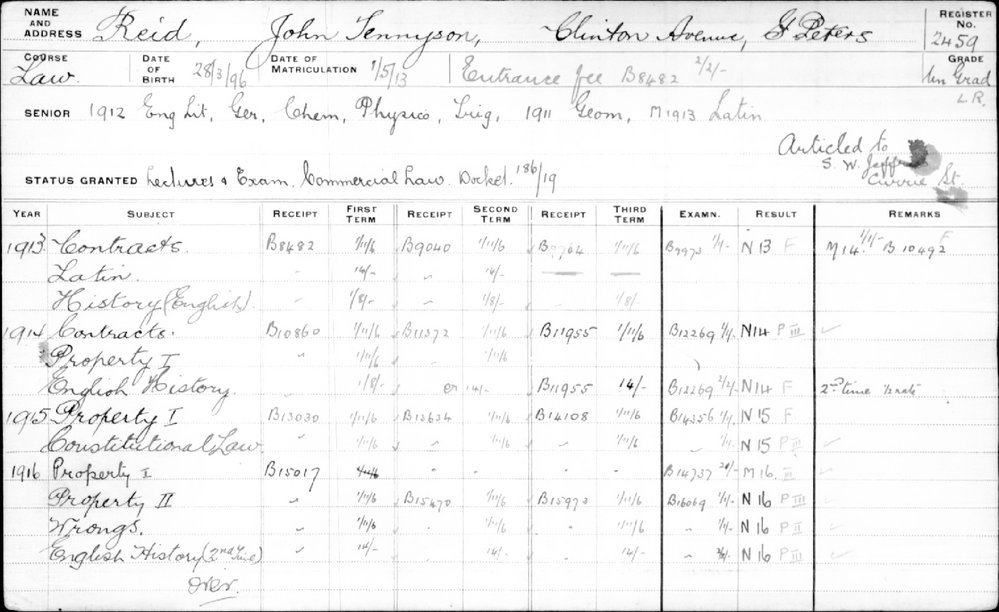 NAME AND ADDRESS Reid, John Tennyson, Clinton Avenue, St Peters REGISTER No. 2459
COURSE Law. DATE OF BIRTH 28/3/96 DATE OF MATRICULATION 1/5/13 Entrance fee B8482 2/2/- GRADE Un Grad
L.R.
SENIOR 1912 Eng Lit, Ger, Chem, Physics, Trig, 1911 Geom, M1913 Latin
Articled to
S. W. Jeff
Currie St.
STATUS GRANTED Lectures & Exam. Commercial Law. Docket 186/19
YEAR SUBJECT RECEIPT FIRST TERM RECEIPT SECOND TERM RECEIPT THIRD TERM EXAMN. RESULT REMARKS
1913 Contracts. B8482 1/11/6 B9040 1/11/6 1/11/6 B9973 1/1/- N 13 F M14. 1/1/- B10492 F
Latin. 14/- " 14/-
History (English). " 1/8/- " 1/8/- " 1/8/-
1914 Contracts. B10860 1/11/6 B11372 1/11/6 B11955 1/11/6 B12269 1/1/- N14 P III ✓
Property I " 1/11/6 " 1/11/6
English History. " 1/8/- cr 14/- B11955 14/- B12269 2/2/- N14 F 2nd time
1915 Property I B13030 1/11/6 B13634 1/11/6 B14108 1/11/6 B14356 1/1/- N 15 F
Constitutional Law. " 1/11/6 " 1/11/6 " 1/11/6 " 1/1/- N 15 P II ✓
1916 Property I B15017 1/11/6 " " " " B14757 M 16. III ✓
Property II " 1/11/6 B15470 1/11/6 B15973 1/11/6 B16069 1/1/- N 16 P III
Wrongs. " 1/11/6 " 1/11/6 " 1/11/6 " 1/1/- N 16 P II ✓
English History (2nd Time) " 14/- " 14/- " 14/- " N 16 P III ✓
over.